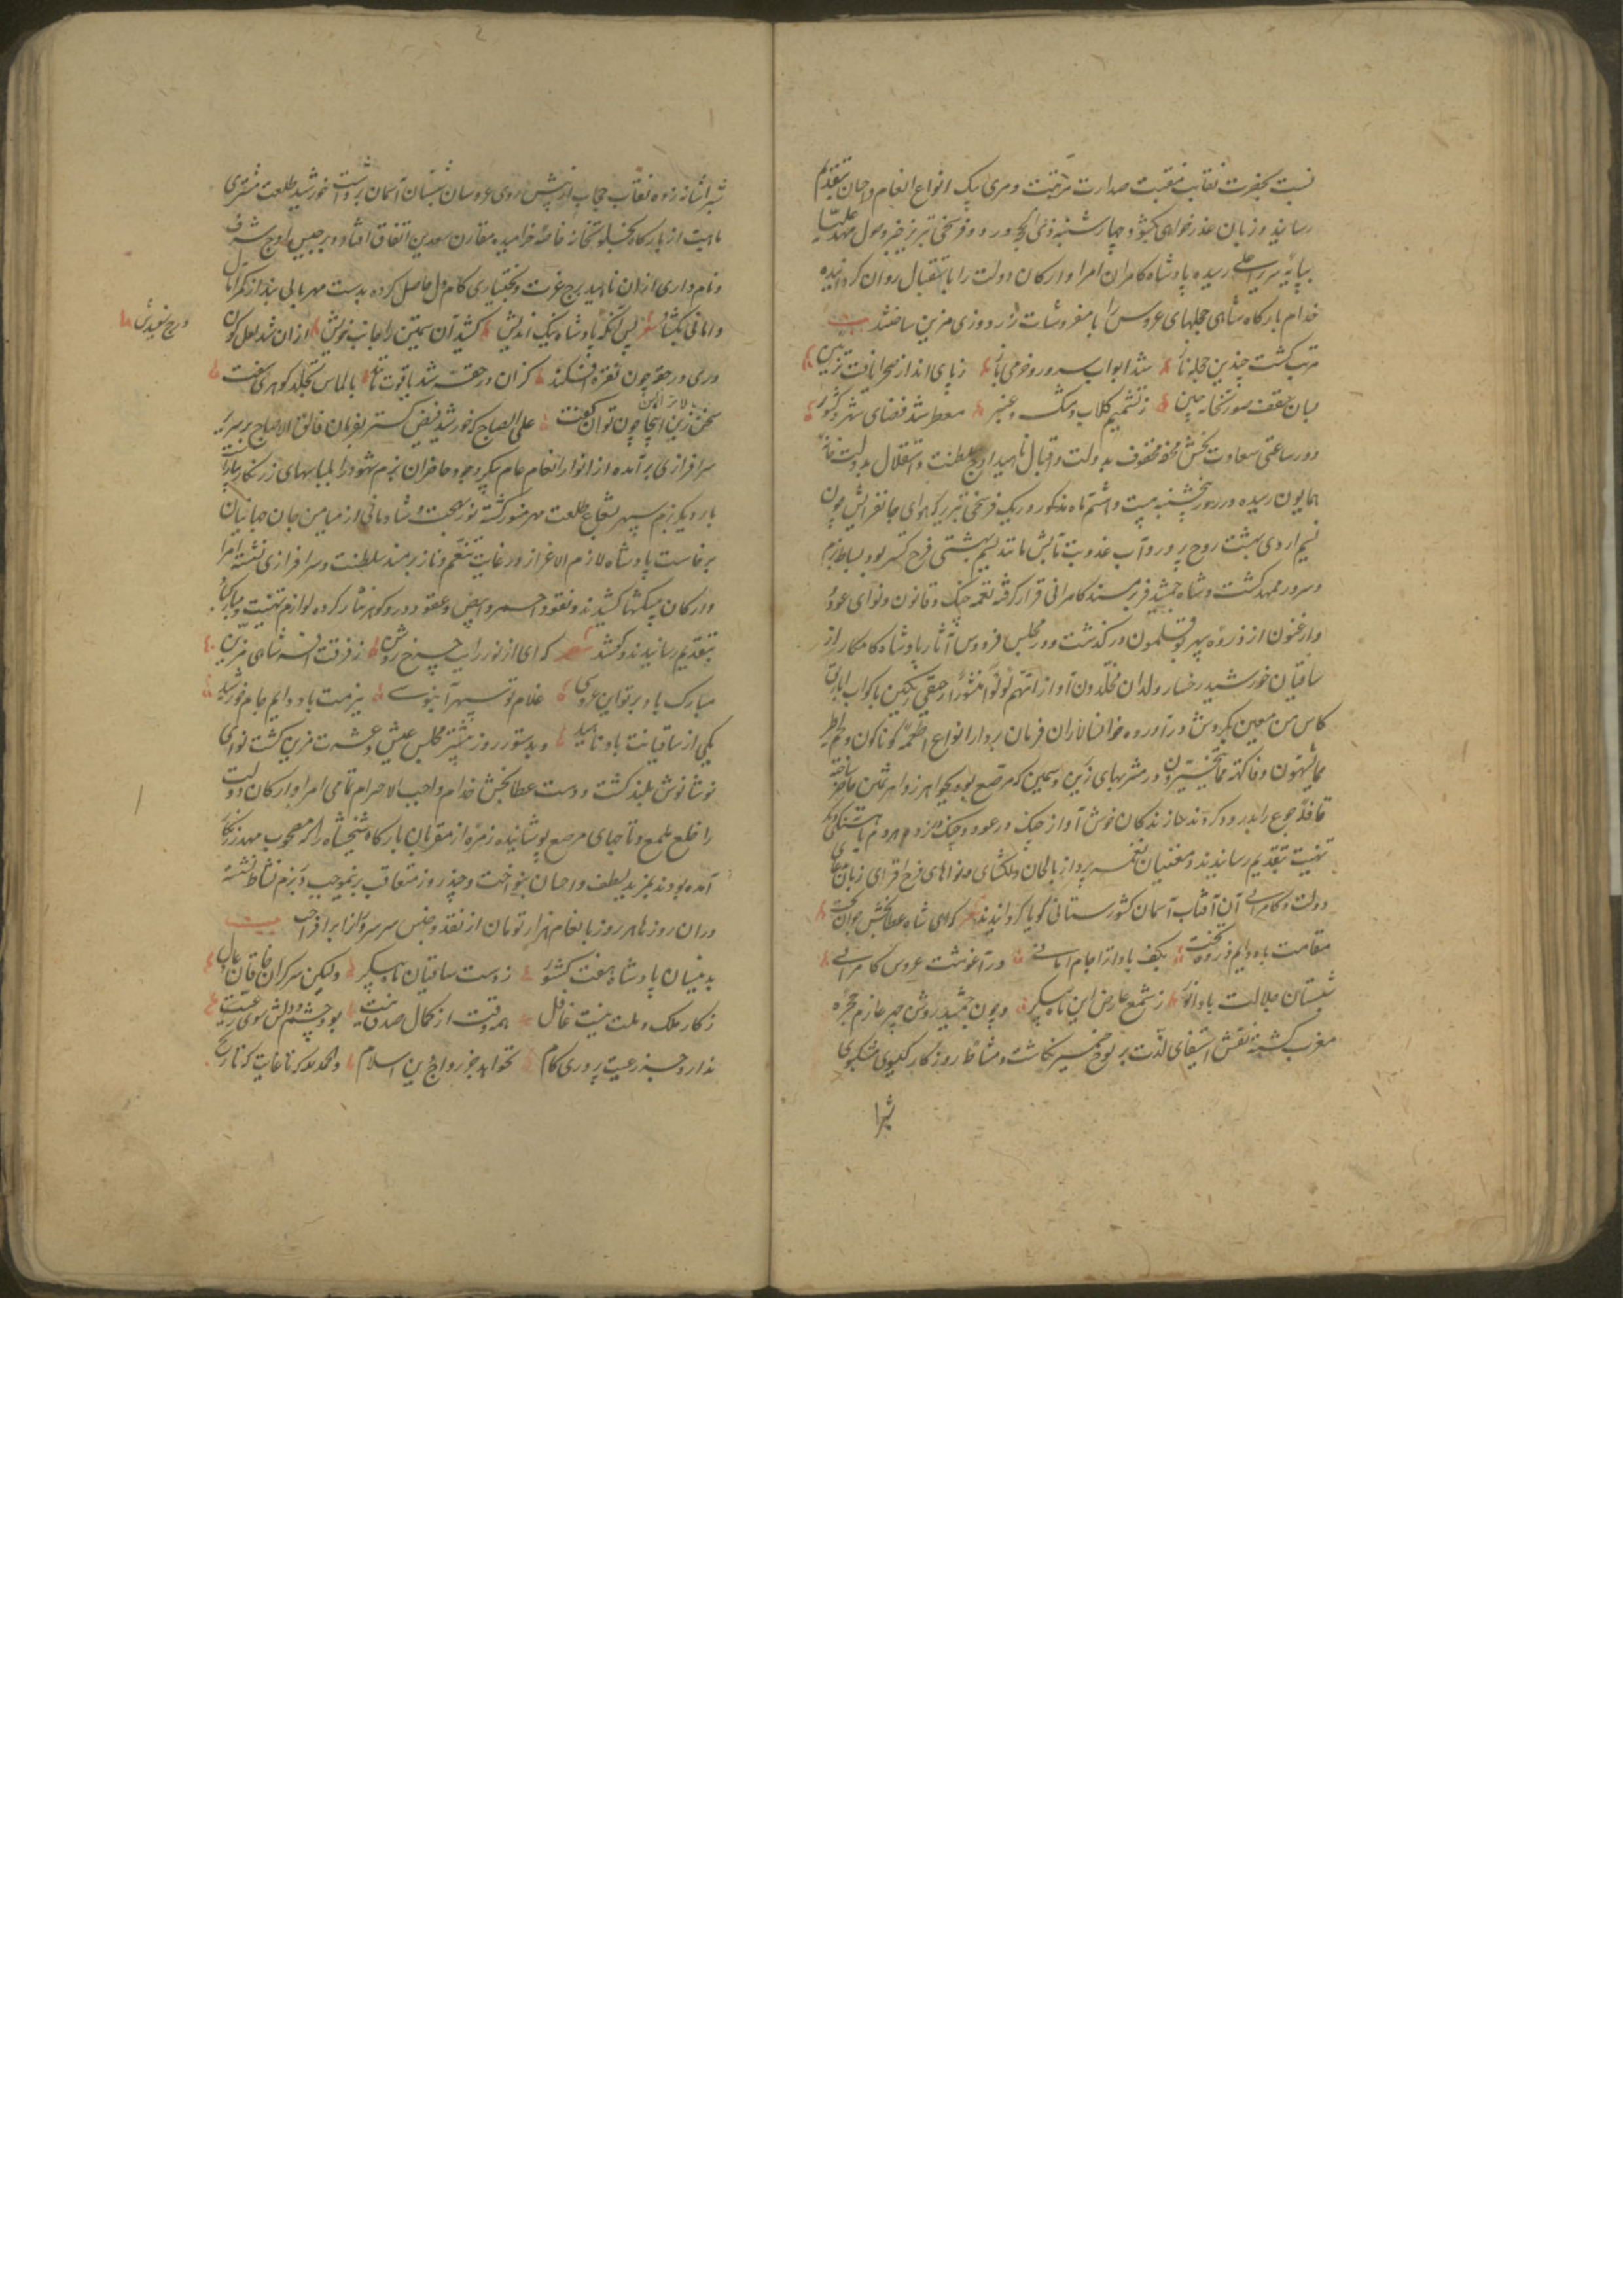 نسبت بحضرت نقابت منقبت صدارت مرتبت و مری بیک انواع انعام و احسان بتقدیم
رسانید و زبان عذرخواهی بکشود و چهارشنبه ذی الحجه در دو فرسخی تبریز خبر وصول مهد علیا
بپایه سریر اعلی رسیده پادشاه کامران امرا و ارکان دولت را باستقبال روان گردانیده
خدام بارگاه شاهی حجلهای عروس را بامفروشات زردوزی مزین ساختند بیت
مرتب گشت چندین حجله ناز شد ابواب سرور و خرمی باز ز پای انداز صحرا یافت تزیین
بسان سقف صورتخانه چین ز تشمیم گلاب و مشک و عنبر معطر شد فضای شهر و کشور
و در ساعتی سعادت بخش محفوف بدولت و اقبال ناهید اوج سلطنت و استقلال بدولت خانه
همایون رسیده و در روز پنجشنبه بیست و هشتم ماه مذکور در یک فرسخی تبریز که هوای جانفزایش چون
نسیم اردی بهشت روح پرور و آب عذوبت مآبش مانند نسیم بهشتی فرح گستر بود بساط بزم
و سرور ممهد گشت و شاه جمشید فر بر مسند کامرانی قرار گرفته نغمه چنگ و قانون و نوای عود
و ارغنون از ذروه سپهر بوقلمون در گذشت و در مجلس فردوس آثار پادشاه کامکار از
ساقیان خورشید رخسار ولدان مخلدون آواز انهم لؤلؤا منثورا رحیقی رنگین باکواب اباریق
کاس من معین بگردش در آورده خوانسالاران فرمان بردار انواع اطعمه گوناگون و لحم طیر
مما یشتهون و فاکهة مما یتخیرون در مشربهای زرین و سیمین که مرصع بود بجواهر زواهر ثمین حاضر ساخته
قافله جوع را بدرود کردند سازندگان خوش آواز چنگ در عود و چنگ زده
تهنیت بتقدیم رسانیدند و مغنیان نغمه پرداز بالحان دلگشای و نواهای فرح افزای زبان
دولت و کامرانی آن آفتاب آسمان کشورستانی گویا گردانیدند شعر که ای شاه عطابخش جوان بخت
مقامت باد دایم ذروه تخت بکف بادات جام امانی در آغوشت عروس کامرانی
شبستان جلالت باد انور ز شمع عارض این ماه پیکر و چون جمشید روشن چهر عازم حجره
مغرب گشته نقش استیفای لذت بر لوح ضمیر نگاشت و مشاطه روزگار گیسوی مشکبوی
شب را
شب را شانه زده نقاب حجاب از پیش روی عروسان شبستان آسمان برداشت خورشید طلعت مشتری
ماهیت از بارگاه بخلوتخانه خاصه خرامیده مقارن سعدین اتفاق افتاد و برجیس اوج شرف
و نام داری از آن ناهید برج عزت و بختیاری کام دل حاصل کرده بدست مهربانی بند از
و امانی بگشاد شعر پس آنگه پادشاه نیک اندیش کشید آن سیمتن را جانب خویش از آن شد لعل گون
درج سفیدش
دری در حقه چون نقره افکند کز آن در حقه شد یاقوت بالماس گوهری سفت
سخن زین اینجا چون توان گفت علی الصباح که خورشید فیض گستر بفرمان فالق الاصباح بر سریر
سرافرازی برآمده از انوار انعام عام پیکر وجوه حاضران بزم شهود را بلباسهای زرنگار بیاراست
بار دیگر بزم سپهر بشعاع طلعت مهر منور گشته نور بهجت و شادمانی از میامن جان جهانیان
برخاست پادشاه لازم الاعزاز در غایت تنعم و ناز بر مسند سلطنت و سرافرازی نشسته امرا
و ارکان پیشکشها کشیدند و نقود احمر و ابیض و عقود در و گوهر نثار کرده لوازم تهنیت و مبارکباد
بتقدیم رسانیدند و گفتند شعر که ای از نور رایت چرخ روشن ز فرقت افسر شاهی مزین
مبارک باد بر تو این عروسی غلام تو سپهر آبنوسی ببزمت باد دایم جام خورشید
یکی از ساقیانت باد ناهید و بدستور روز پیشتر مجلس عیش و عشرت مزین گشت نوای
نوشانوش بلند گشت و دست عطابخش خدام واجب الاحترام تمامی امرا و ارکان دولت
را خلع ملمع و تاجهای مرصع پوشانیده زمره از مقربان بارگاه شیخ شاه را که مصحوب مهد زرنگار
آمده بودند بمزید لطف و احسان بنواخت و چند روز متعاقب برینموجب در بزم نشاط نشسته
در آن روزها هر روز بانعام هزار تومان از نقد و جنس سروران را برافراخت بیت
بدینسان پادشاه هفت کشور ز دست ساقیان ماه پیکر ولیکن سرگران خاقان عادل
ز کار ملک و ملت نیست غافل همه وقت از کمال صدق نیت بود چشم و دلش سوی رعیت
ندارد جز رعیت پروری کام نخواهد جز رواج دین اسلام و الحمدلله که تا غایت که تاریخ